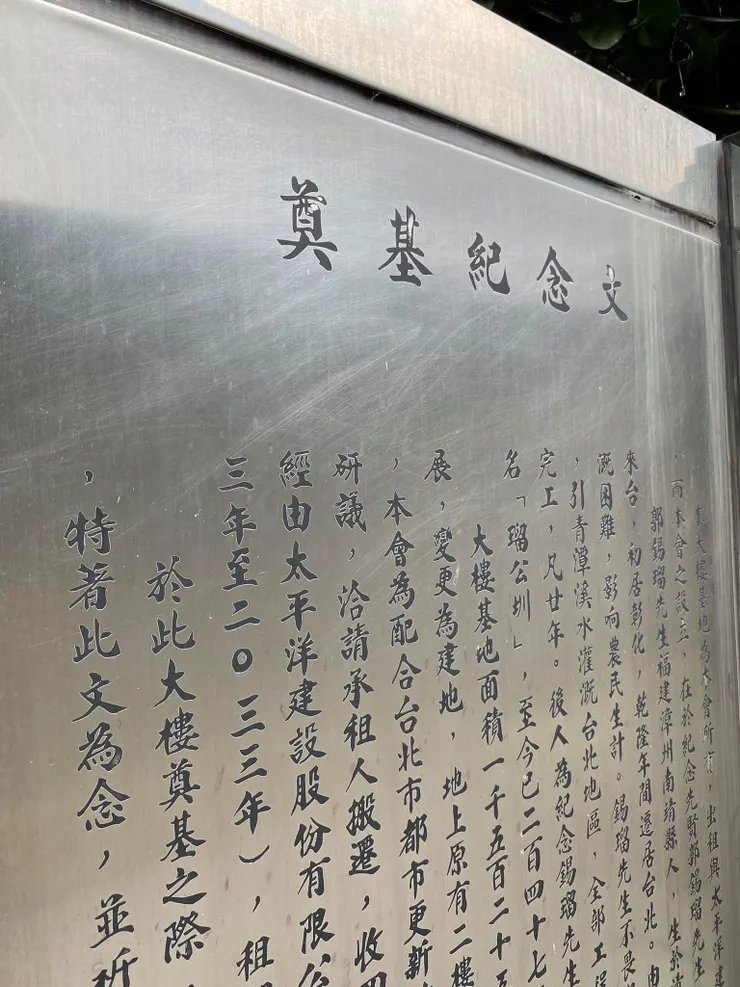 奠基紀念文
東大樓基地為本會所有，出租與太平洋建
，而本會之設立，在於紀念先賢郭錫瑠先生
郭錫瑠先生福建漳州南靖縣人，生於清
來台，初居彰化，乾隆年間遷居台北。由
溉困難，影响農民生計。錫瑠先生不畏
，引青潭溪水灌溉台北地區，全部工程
完工，凡廿年。後人為紀念錫瑠先生
名「瑠公圳」，至今已二百四十七
大樓基地面積一千五百二十五
展，變更為建地，地上原有二樓
，本會為配合台北市都市更新
研議，洽請承租人搬遷，收回
經由太平洋建設股份有限公
三年至二０三三年），租
於此大樓奠基之際
，特著此文為念，並祈